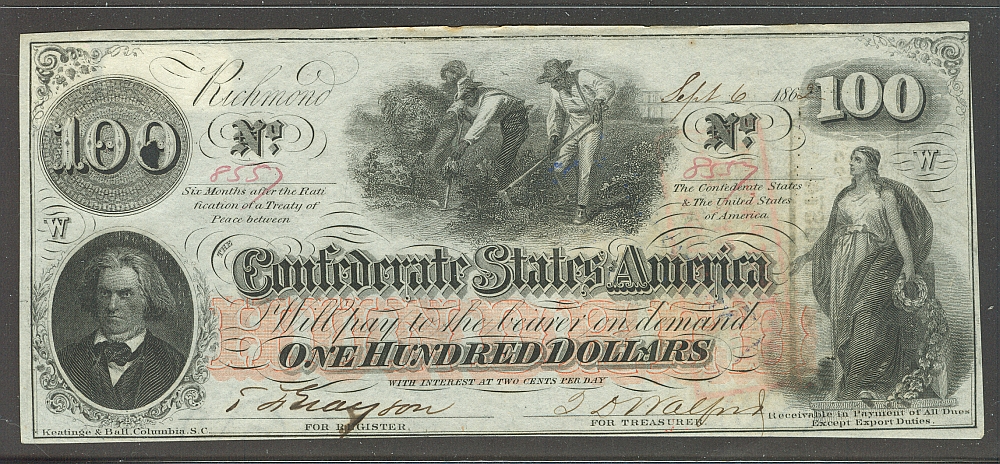 Richmond
Sept 6 1862
100
100
No.
No.
8557
8557
Six Months after the Rati
fication of a Treaty of
Peace between
The Confederate States
& The United States
of America
W
W
THE
Confederate States America
Will pay to the bearer on demand
ONE HUNDRED DOLLARS
WITH INTEREST AT TWO CENTS PER DAY
FOR REGISTER.
FOR TREASURER
Keatinge & Ball, Columbia, S.C.
Receivable in Payment of All Dues
Except Export Duties.